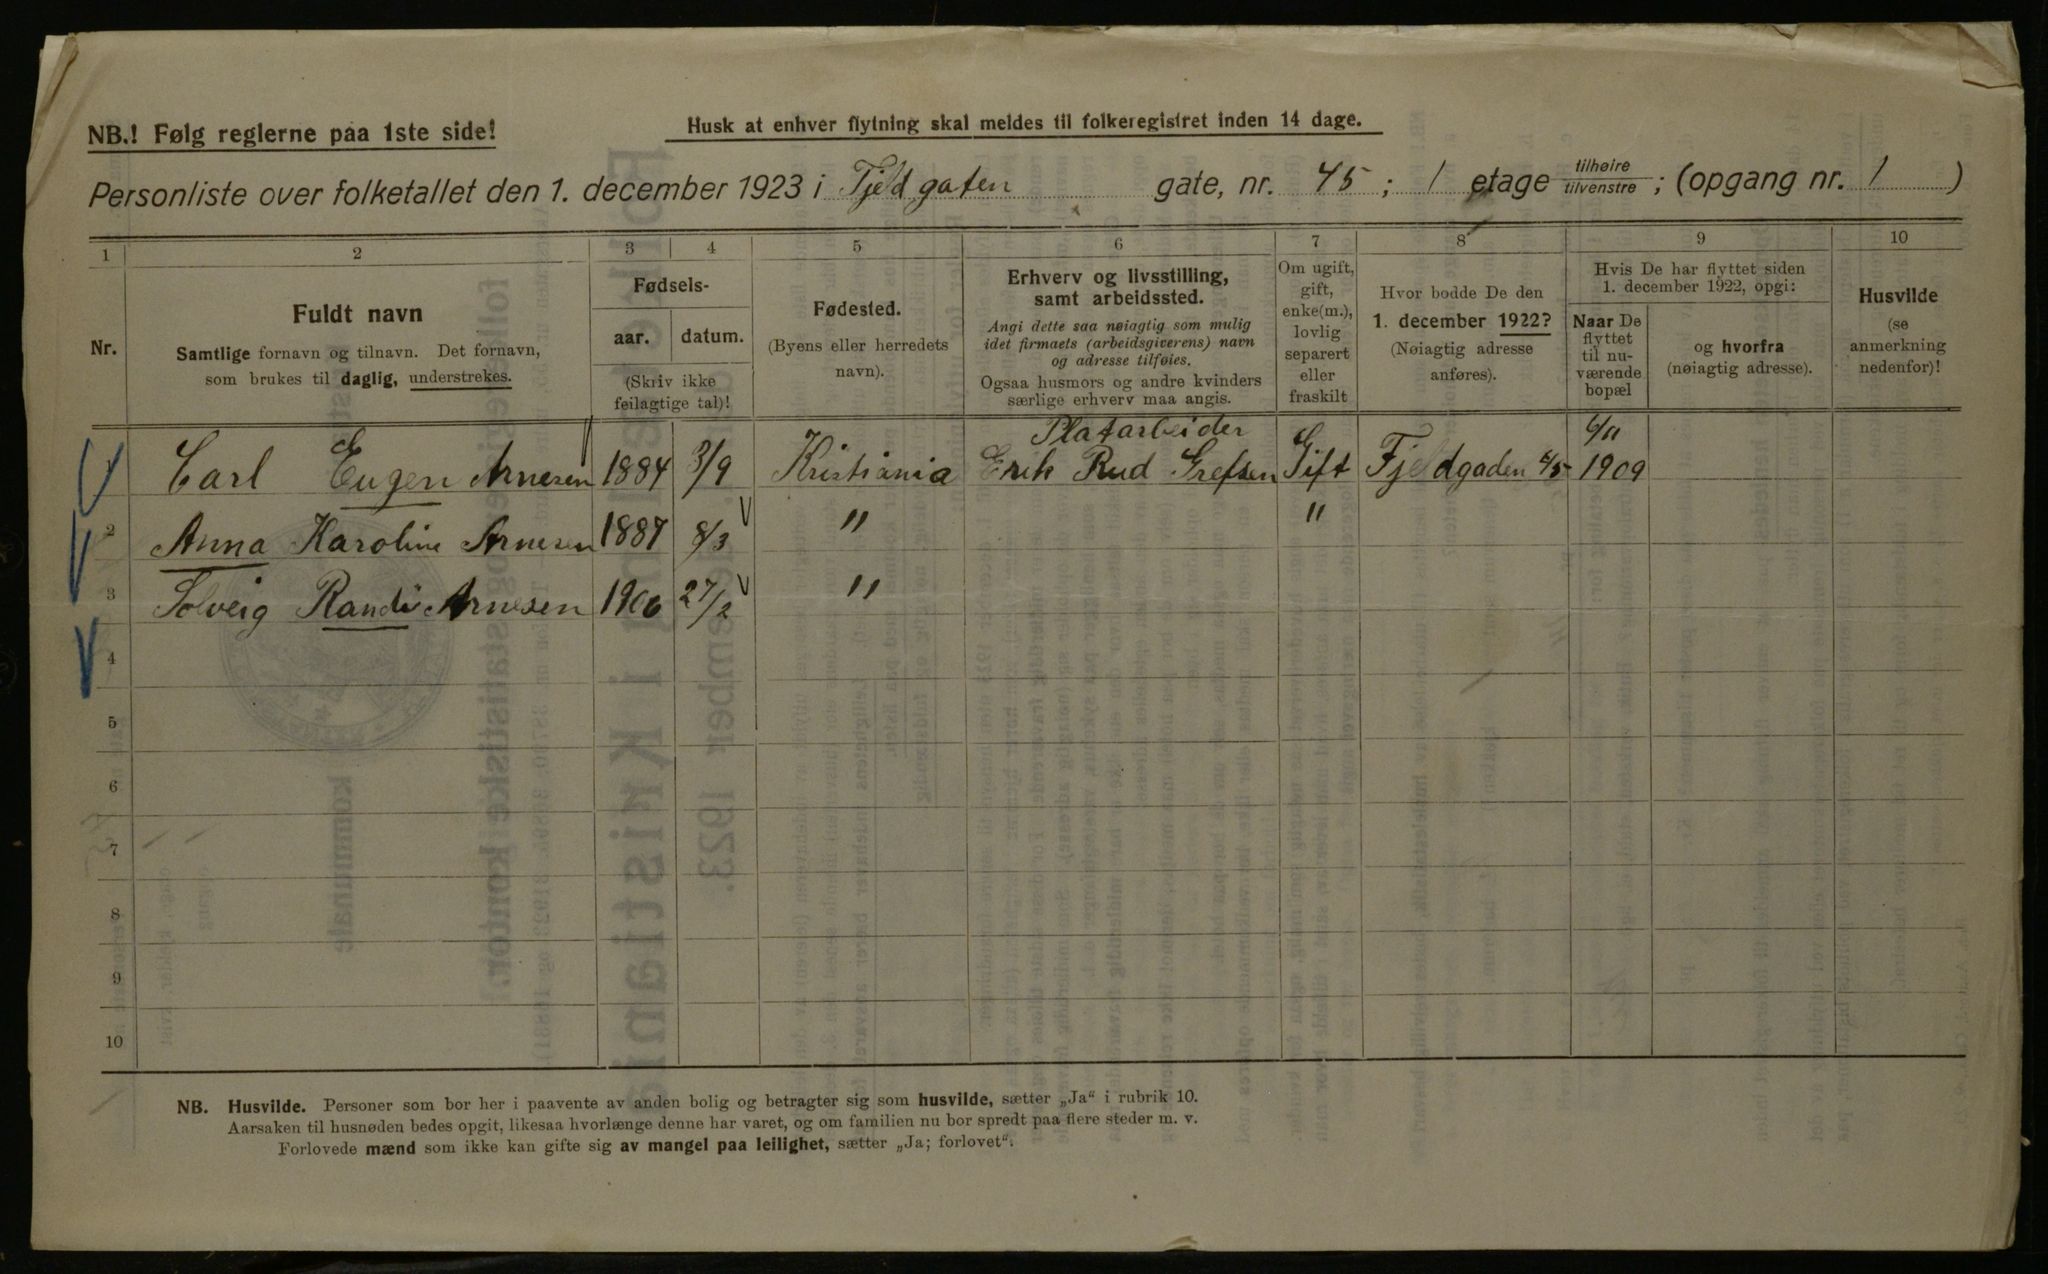 NB.! Følg reglerne paa 1ste side!
Husk at enhver flytning skal meldes til folkeregistret inden 14 dage.
Personliste over folketallet den 1. december 1923 i Fjeldgaten gate, nr. 45; 1 etage tilhøire/tilvenstre; (opgang nr. 1)
1 2 3 4 5 6 7 8 9 10
Nr.
Fuldt navn
Samtlige fornavn og tilnavn. Det fornavn,
som brukes til daglig, understrekes.
Fødsels-
aar. datum.
(Skriv ikke
feilagtige tal)!
Fødested.
(Byens eller herredets
navn).
Erhverv og livsstilling,
samt arbeidssted.
Angi dette saa nøiagtig som mulig
idet firmaets (arbeidsgiverens) navn
og adresse tilføies.
Ogsaa husmors og andre kvinders
særlige erhverv maa angis.
Om ugift,
gift,
enke(m.),
lovlig
separert
eller
fraskilt
Hvor bodde De den
1. december 1922?
(Nøiagtig adresse
anføres).
Hvis De har flyttet siden
1. december 1922, opgi:
Naar De
flyttet
til nu-
værende
bopæl
og hvorfra
(nøiagtig adresse).
Husvilde
(se
anmerkning
nedenfor)!
Platarbeider 6/11
1 Carl Eugen Arnesen 1884 3/9 Kristiania Erik Rud Grefsen Gift Fjeldgaden 45 1909
2 Anna Karoline Arnesen 1887 8/3 " "
3 Solveig Randi Arnesen 1906 27/2 "
4
5
6
7
8
9
10
NB. Husvilde. Personer som bor her i paavente av anden bolig og betragter sig som husvilde, sætter „Ja“ i rubrik 10.
Aarsaken til husnøden bedes opgit, likesaa hvorlænge denne har varet, og om familien nu bor spredt paa flere steder m. v.
Forlovede mænd som ikke kan gifte sig av mangel paa leilighet, sætter „Ja; forlovet“.